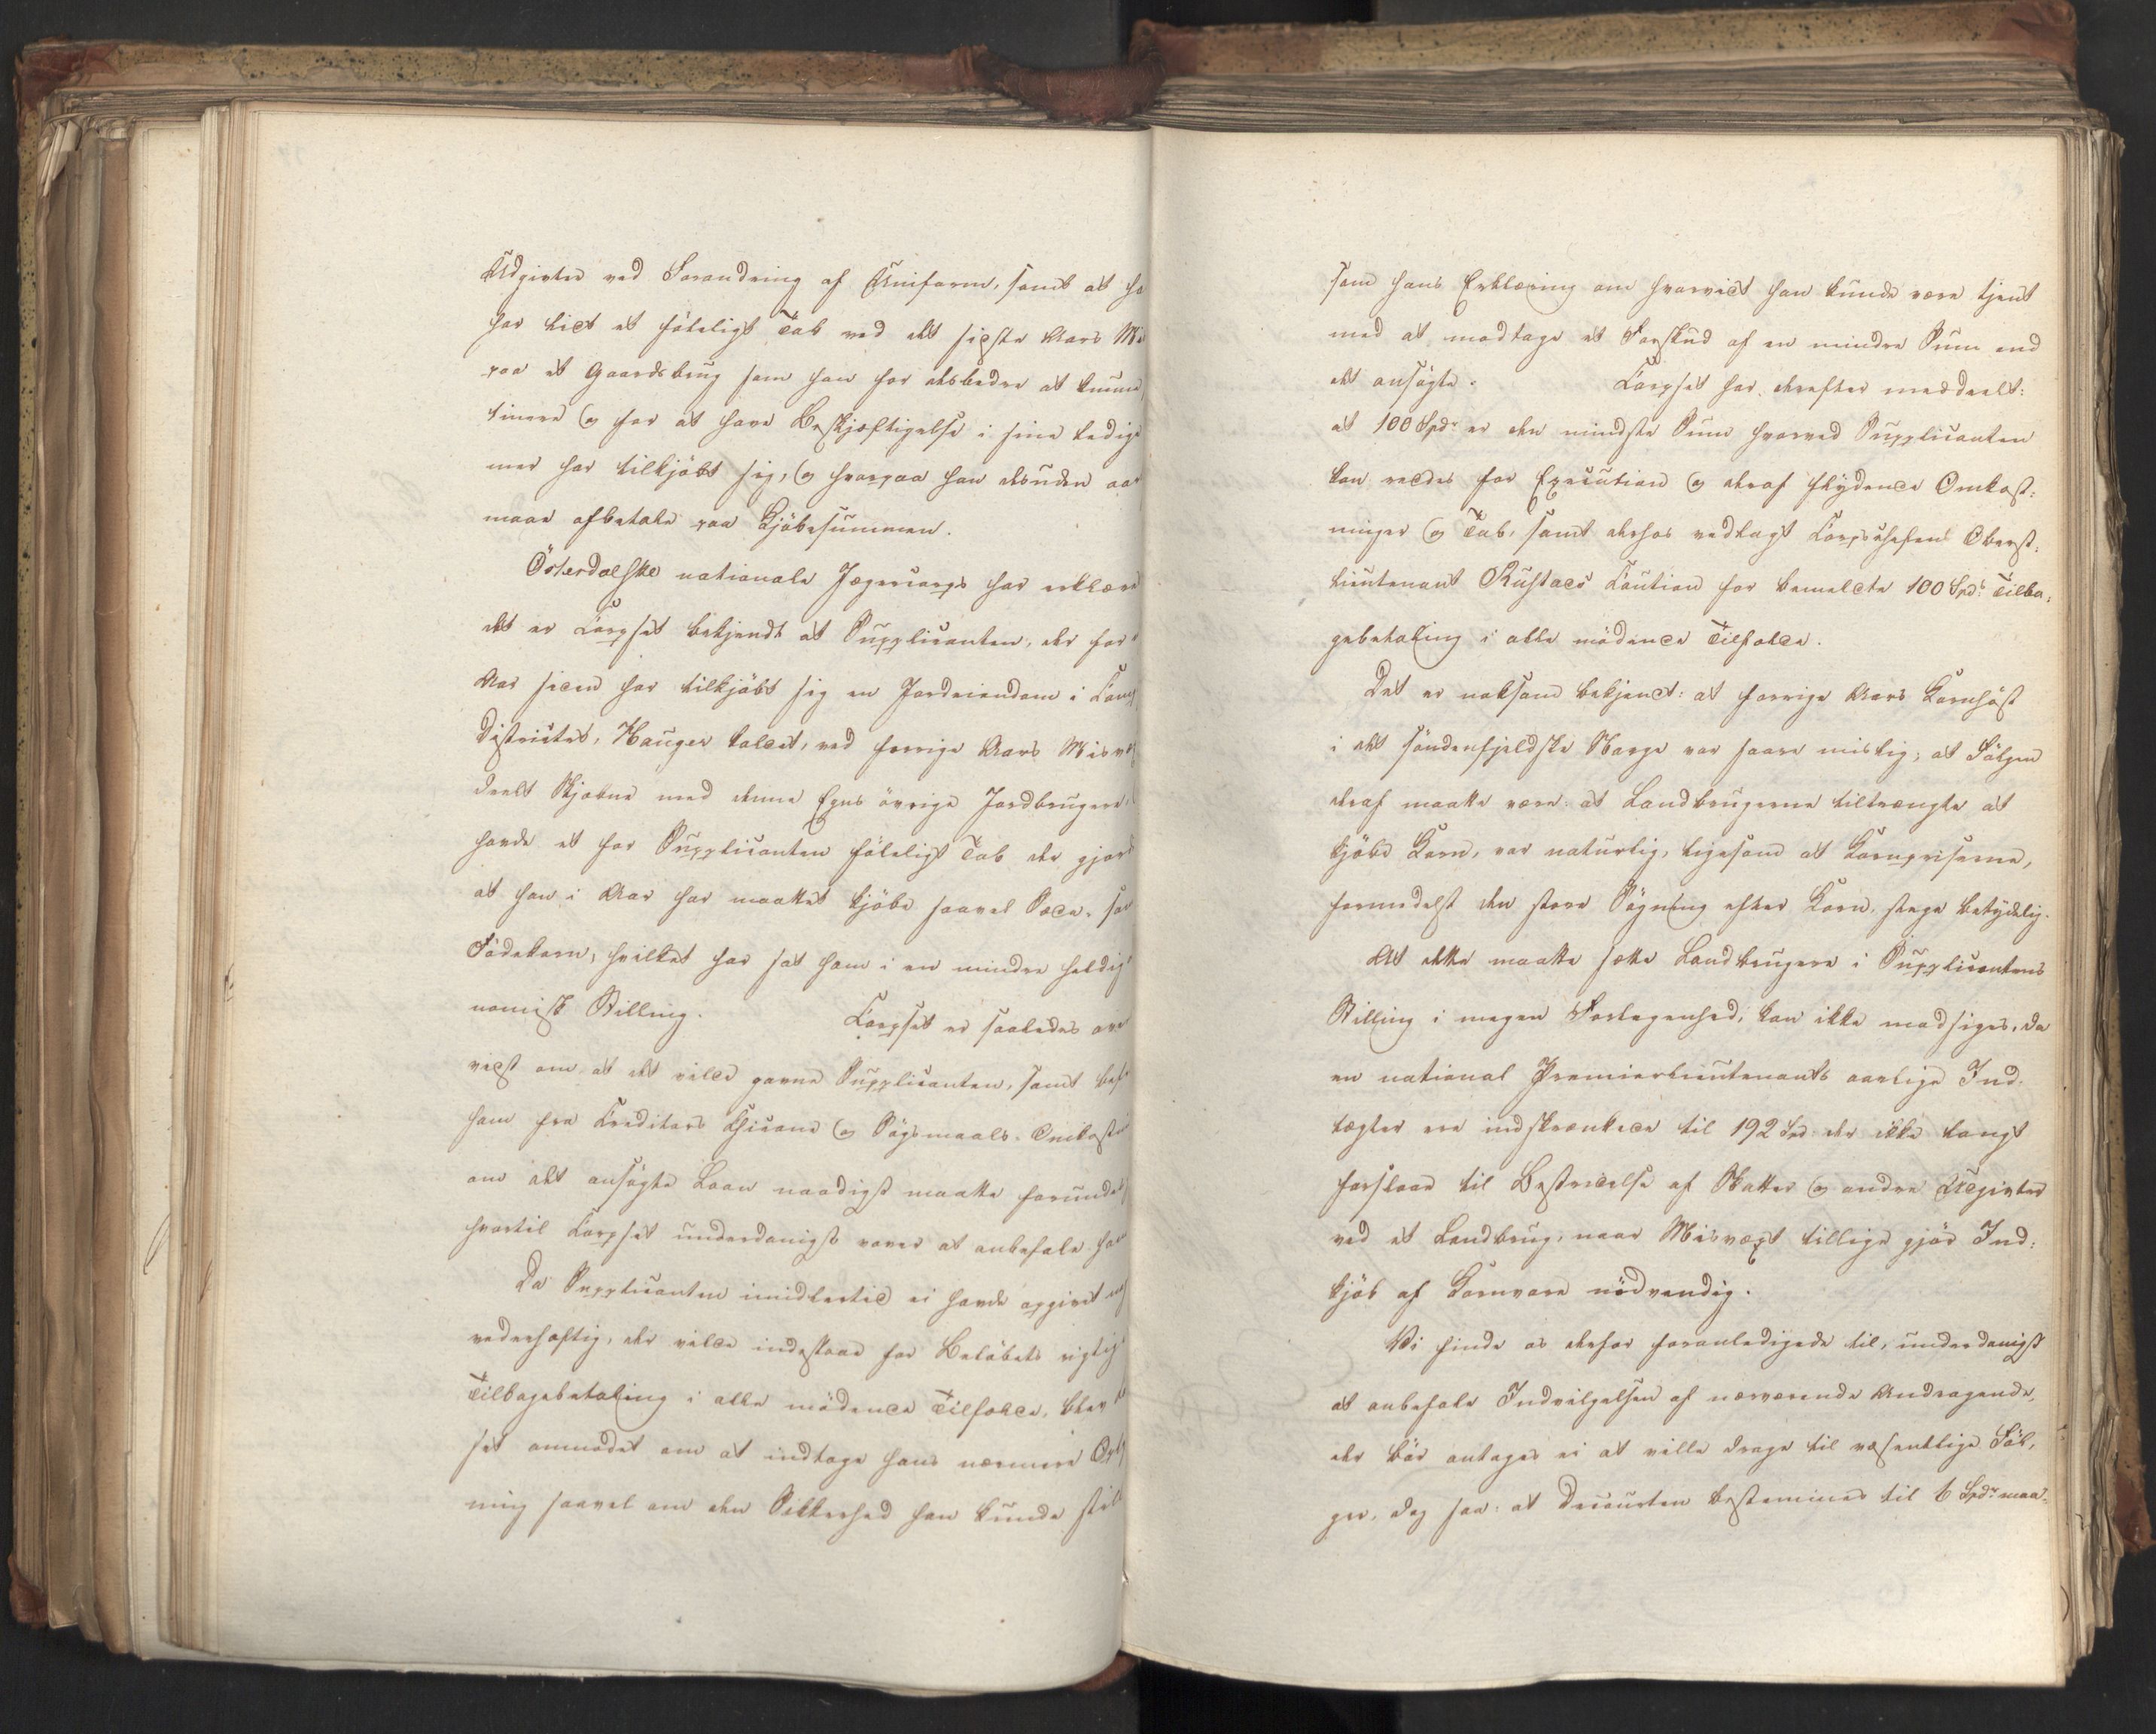 Udgivter ved Forandring af Uniform, samt at ha
har lidt et föleligt Tab ved det sidste Aars Mi
paa et Gaardsbrug som han for desbedre at kunne
tinere og for at have Beskjæftigelse i sine ledige
mer har tilkjöbt sig, og hvorpaa han desuden aar
maae afbetale paa Kjöbesummen.
Österdalske nationale Jægercorps har erklære
det er Corpset bekjendt at Supplicanten, der for
Aar siden har tilkjöbt sig en Jordeiendom i Corps
Districtet, Hauger kaldet, ved forrige Aars Misvæ
deelt Skjæbne med denne Egns övrige Jordbrugere,
havde et for Supplicanten föleligt Tab der gjord
at han i Aar har maattet kjöbe saavel Sæde- som
Födekorn, hvilket har sat ham i en mindre heldig
nomisk Stilling. Corpset er saaledes over
viist om at det vilde gavne Supplicanten, samt befr
ham fra Creditors Chicane og Sögsmaals-Omkostni
om det ansögte Laan naadigst maatte forundes
hvortil Corpset underdanigst vover at anbefale ham
Da Supplicanten imidlertid ei havde opgivet nog
vederhæftig, der vilde indestaae for Belöbets rigtige
Tilbagebetaling i alle mödende Tilfælde, blev
set anmodet om at indtage hans nærmere Opl
ning saavel om den Sikkerhed han kunde stille
som hans Erklæring om hvorvidt han kunde være tjent
med at modtage et Forskud af en mindre Sum end
det ansögte. Corpset har derefter meddeelt:
at 100 Spdr er den mindste Sum hvorved Supplicanten
kan reddes for Execution og deraf flydende Omkost:
ninger og Tab, samt derhos vedlagt Corpschefens Oberst:
lieutenant Rustads Caution for bemeldte 100 Spdr Tilba:
gebetaling i alle mödende Tilfælde.
Det er noksom bekjendt: at forrige Aars Kornhöst
i det söndenfjeldske Norge var saare mislig; at Fölgen
deraf maatte være: at Landbrugerne tiltrængte at
kjöbe Korn, var naturlig, ligesom at Kornpriserne,
formedelst den store Sögning efter Korn, stege betydelig.
At dette maatte sætte Landbrugere i Supplicantens
Stilling i megen Forlegenhed, kan ikke modsiges, da
en national Premierlieutenants aarlige Ind:
tægter ere indskrænkede til 192 Spd der ikke langt
forslaae til Bestridelse af Skatter og andre Udgivter
ved et Landbrug, naar Misvæxt tillige gjör Ind:
kjöb af Kornvare nödvendig.
Vi finde os derfor foranledigede til, underdanigst
at anbefale Indvilgelsen af nærværende Andragende,
der bör antages ei at ville drage til væsentlige Föl,
ger, dog saa: at Decourten bestemmes til 6 Spdr maa: